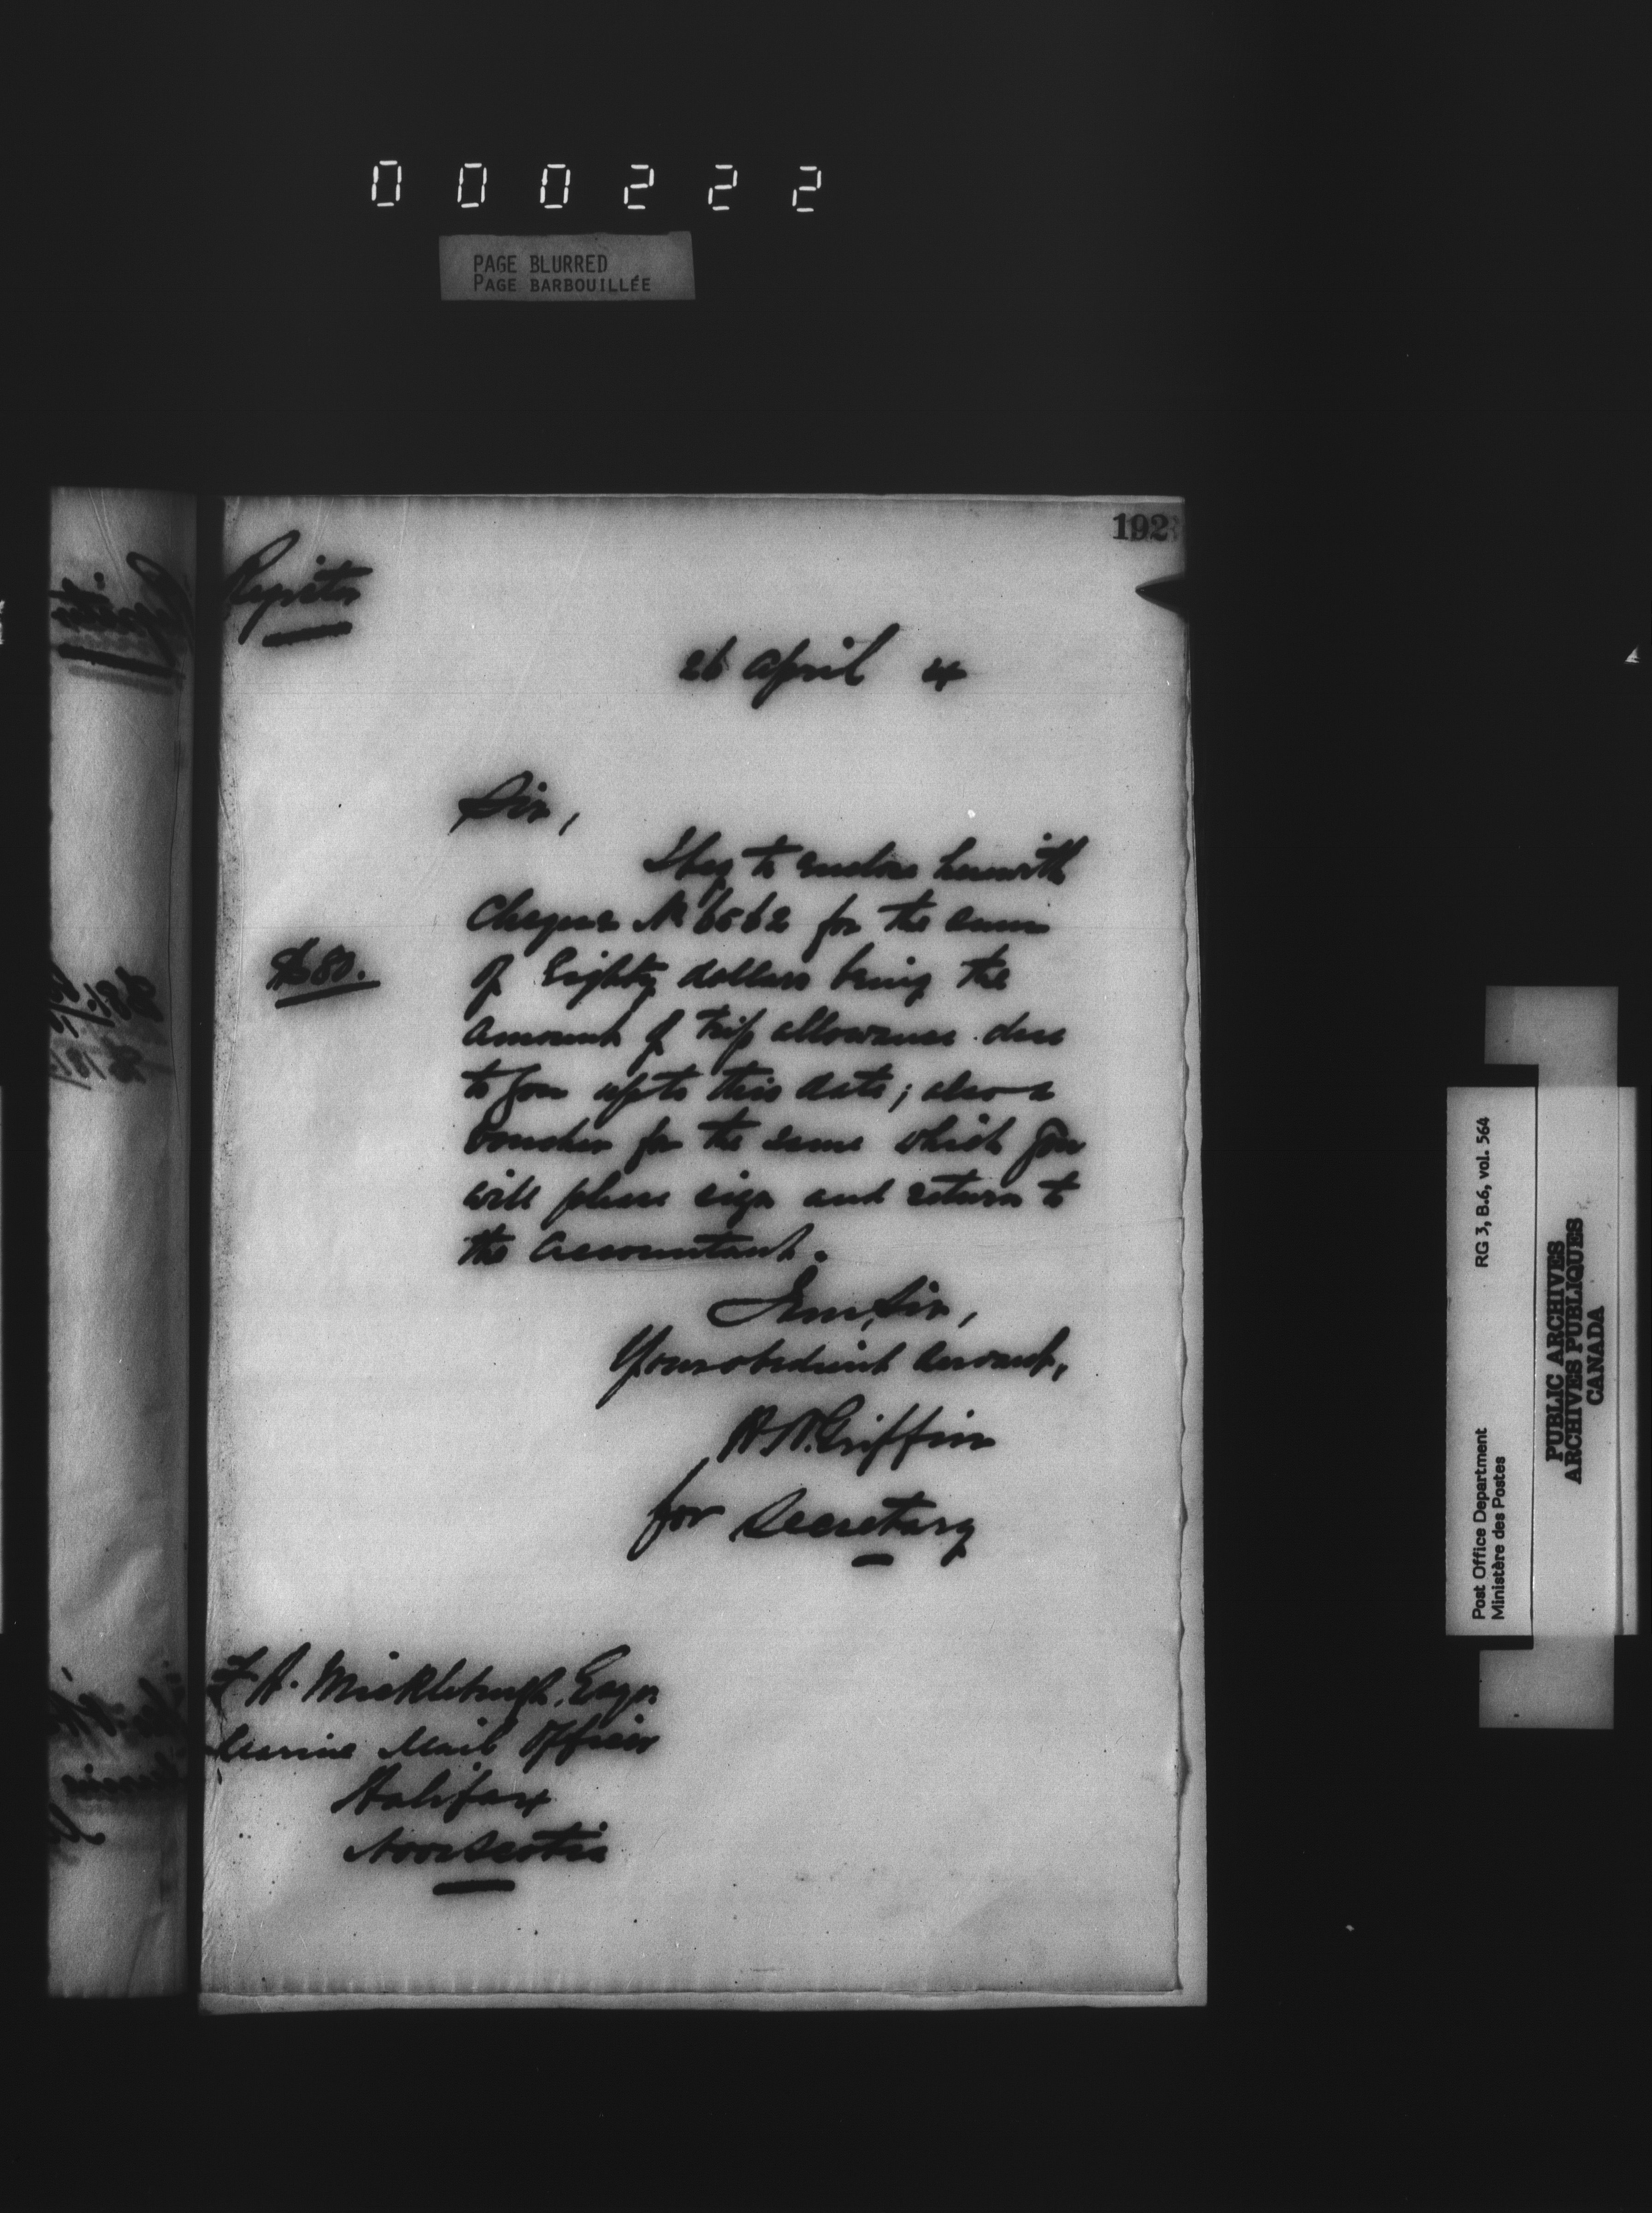 000222
PAGE BLURRED
PAGE BARBOUILLÉE
192
Register
26 April 4
Sir,
I beg to enclose herewith
Cheque No 6562 for the sum
$80.
of Eighty dollars being the
amount of trip allowance due
to you up to this date; also a
voucher for the same which you
will please sign and return to
the Accountant.
I am, Sir,
Your obedient servant,
Griffin
for Secretary
F A. Mickleburgh, Esqr
Marine Mail Officer
Halifax
Nova Scotia
Post Office Department RG 3, B.6, vol. 564
Ministère des Postes
PUBLIC ARCHIVES
ARCHIVES PUBLIQUES
CANADA